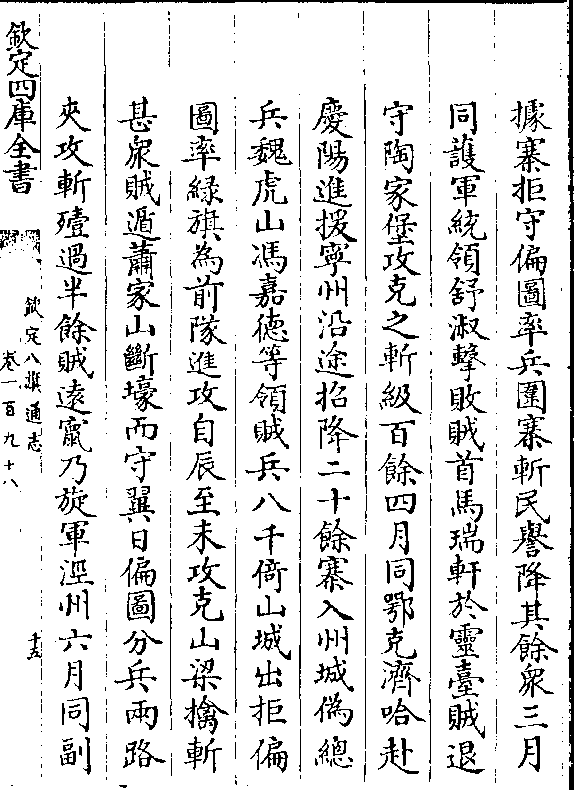 據寨拒守偏圖率兵圍寨斬民譽降其餘衆三月
同護軍統領舒淑擊敗賊首馬瑞軒於靈臺賊退
守陶家堡攻克之斬級百餘四月同鄂克濟哈赴
慶陽進援寧州沿途招降二十餘寨入州城偽總
兵魏虎山馮嘉德等領賊兵八千倚山城出拒偏
圖率綠旗為前隊進攻自辰至未攻克山梁擒斬
甚衆賊遁蕭家山斷壕而守翼日偏圖分兵兩路
夾攻斬殪過半餘賊遠竄乃旋軍涇州六月同副
欽定四庫全書
欽定八旗通志
卷一百九十八
十五